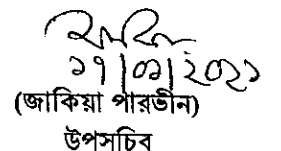 ১৭/০১/২০২১
(জাকিয়া পারভীন)
উপসচিব